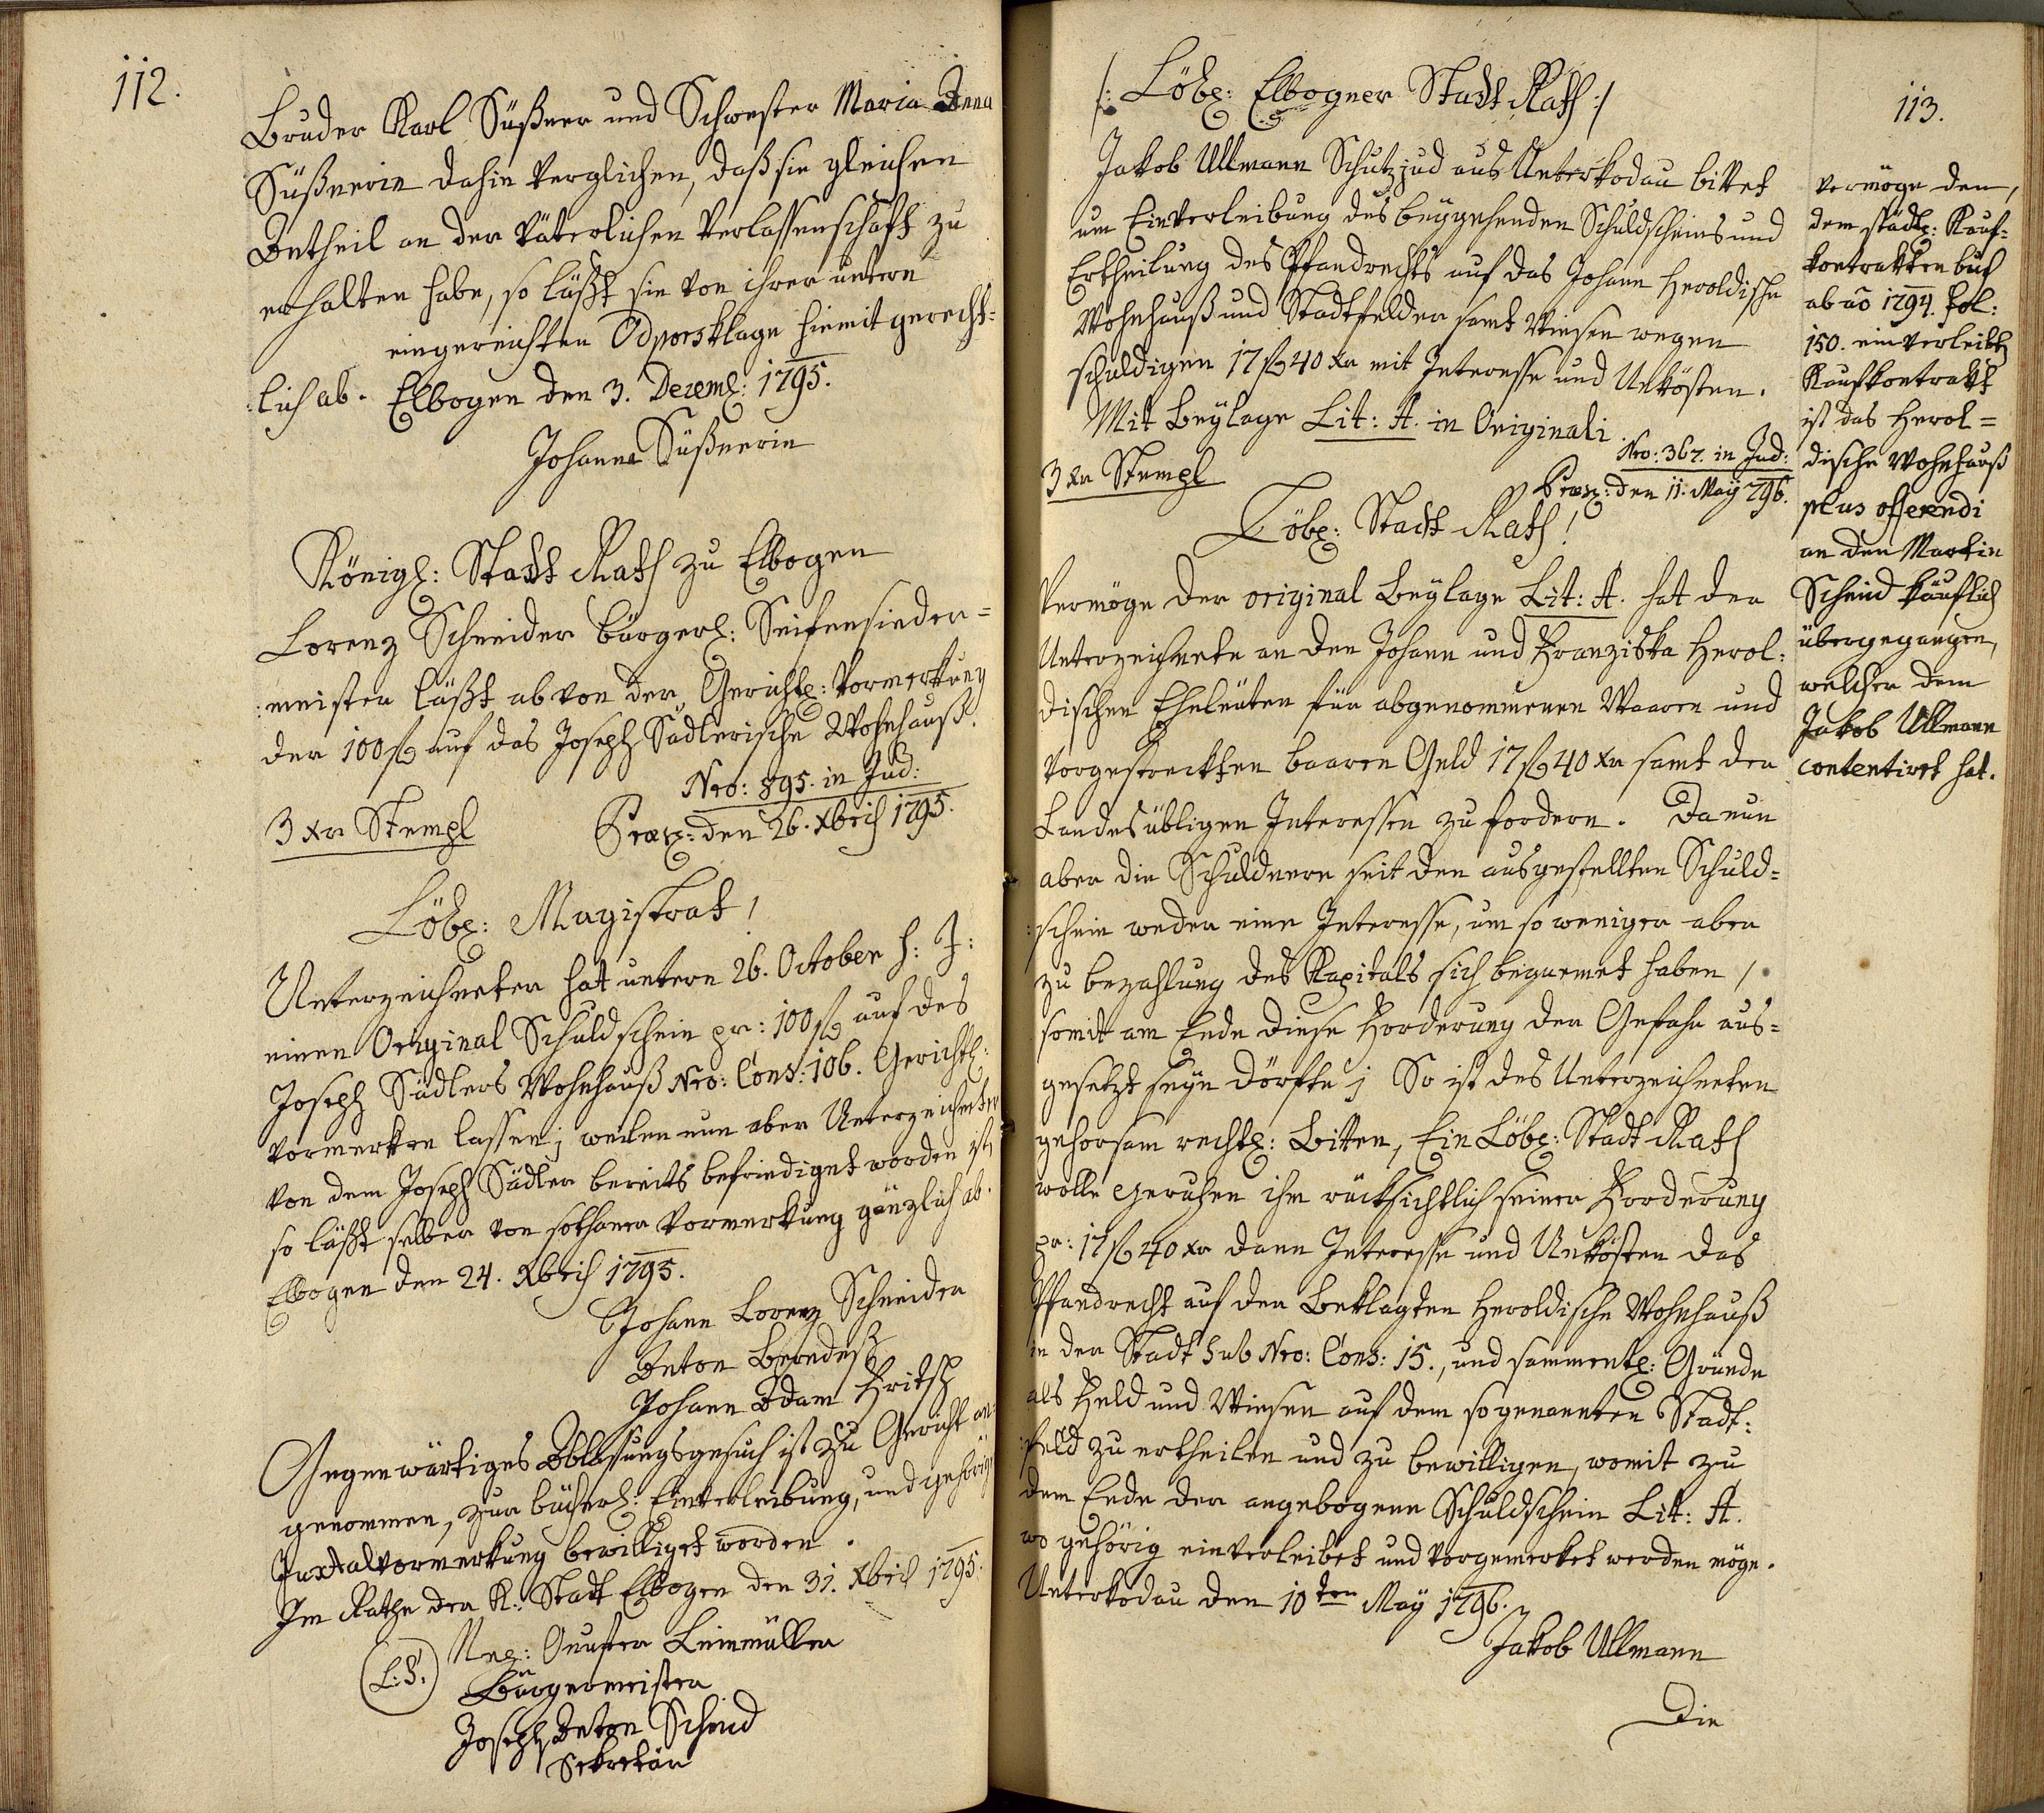 112.
Bruder Karl Süßner und Schwester Maria Anna
Süßnerin dahin verglichen, daß sie gleichen
Antheil an der väterlichen Verlassenschaft zu
erhalten habe, so läßt sie von ihrer untern
eingereichten Odporsklage hiemit gerecht-
:lich ab. Elbogen den 3. Dezemb: 1795.
Johanna Süßnerin
Königl: Stadt Rath zu Elbogen
Lorenz Schneider bürgerl: Seifensieder=
:meister läßt ab von der Gerichtl: Vormerkung
der 100 f auf das Joseph Sädlerische Wohnhauß.
Nro: 895. in Jud:
3 xr Stempl
Præs: den 26. Xbris 1795.
Löbl: Magistrat!
Unterzeichneter hat untern 26. October h: J:
einen Original Schuldschein pr: 100 f auf des
Joseph Sädlers Wohnhauß Nro: Cons: 106. Gerichtl:
vormerken lassen; weilen nun aber Unterzeichneter
von dem Joseph Sädler bereits befriediget worden ist,
so läßt selber von sothaner Vormerkung gänzlich ab.
Elbogen den 24. Xbris 1795.
Johann Lorenz Schneider
Anton
Johann Adam Fritsch
Gegenwärtiges Ablassungsgesuch ist zu Gericht an-
genommen, zur bücherl: Einverleibung, und gehörige
Juxtalvormerkung bewilliget worden.
Im Rathe der K: Stadt Elbogen den 31. Xbris 1795.
(L.S.)
Leinmüller
Bürgermeister
Joseph Anton Scheid
Sekretär
/: Löbl: Elbogner Stadt Rath :/
113.
Jakob Ullmann Schutzjud aus Unterkodau bittet
um Einverleibung des beygehenden Schuldscheins und
Ertheilung des Pfandrechts auf das Johann Heroldische
Wohnhauß und Stadtfelder samt Wiesen wegen
schuldigen 17 f 40 xr mit Interesse und Unkösten.
Mit Beylage Lit: A. in Originali
Nro: 367. in Jud:
3 xr Stempl
Præs: den 11. May 796.
Löbl: Stadt Rath!
Vermöge der original Beylage Lit: A. hat der
Unterzeichnete an den Johann und Franziska Herol:
dischen Eheleuten für abgenommenen Waaren und
vorgestreckten baaren Geld 17 f 40 xr samt den
Landesübligen Interessen zu fordern. Da nun
aber die Schuldnere seit den ausgestellten Schuld=
:schein weder eine Interesse, um so weniger aber
zu bezahlung des Kapitals sich bequemet haben,
somit am Ende diese Forderung der Gefahr aus=
gesetzt seyn dörfte; So ist des Unterzeichneten
gehorsam rechtl: Bitten, Ein Löbl: Stadt Rath
wolle geruhen ihm rücksichtlich seiner Forderung
pr: 17 f 40 xr dann Interesse und Unkösten das
Pfandrecht auf den Beklagten Heroldische Wohnhauß
in der Stadt sub Nro: Cons: 15., und sammentl: Gründe
als Feld und Wiesen auf dem sogenannten Stadt:
:feld zu ertheilen und zu bewilligen, womit zu
dem Ende der angebogene Schuldschein Lit: A.
wo gehörig einverleibet und vorgemerket werden möge.
Unterkodau den 10ten May 1796.
Jakob Ullmann
Die
vermöge den,
dem städtl: Kauf=
kontrakten buch
ab aõ 1794. fol:
150. einverleibten
Kaufkontrakt
ist das Herol=
dische Wohnhauß
plus offerendi
an den Martin
Scheid käuflich
übergegangen,
welcher dem
Jakob Ullmann
contentiret hat.